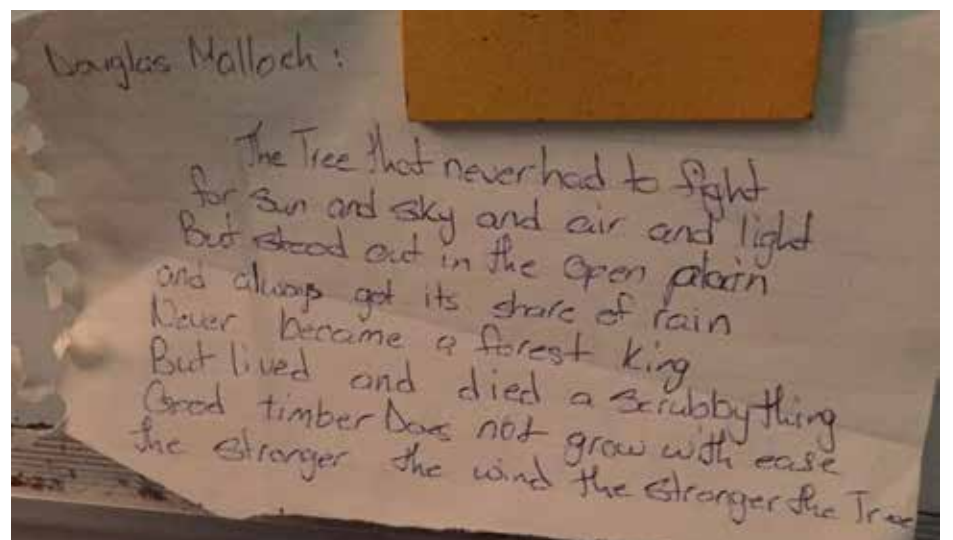 Douglas Malloch :
The Tree that never had to fight
for sun and sky and air and light
But stood out in the open plain
and always got its share of rain
Never became a forest king
But lived and died a scrubby thing
Good timber Does not grow with ease
the stronger the wind the stronger the Tree